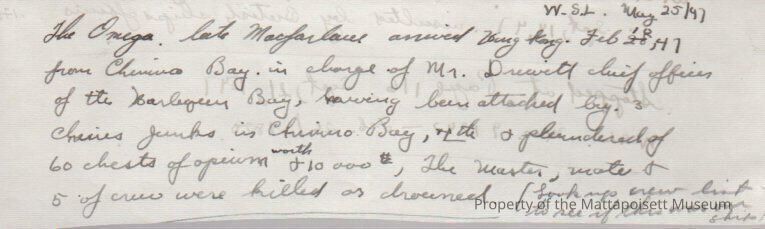 W.S.L. May 25/47
The Omega. late Macfarlane arrived Hong Kong. Feb 18, 47
from Chimmo Bay. in charge of Mr. Drewett chief officer
of the Harlequin Bay, having been attacked by 3
Chines Junks in Chimmo Bay, 4th & plundered of
60 chests of opium worth $10 000 #, The Master, mate &
5 of crew were killed or drowned (Look up crew list
to see if this was our ship)
Property of the Mattapoisett Museum